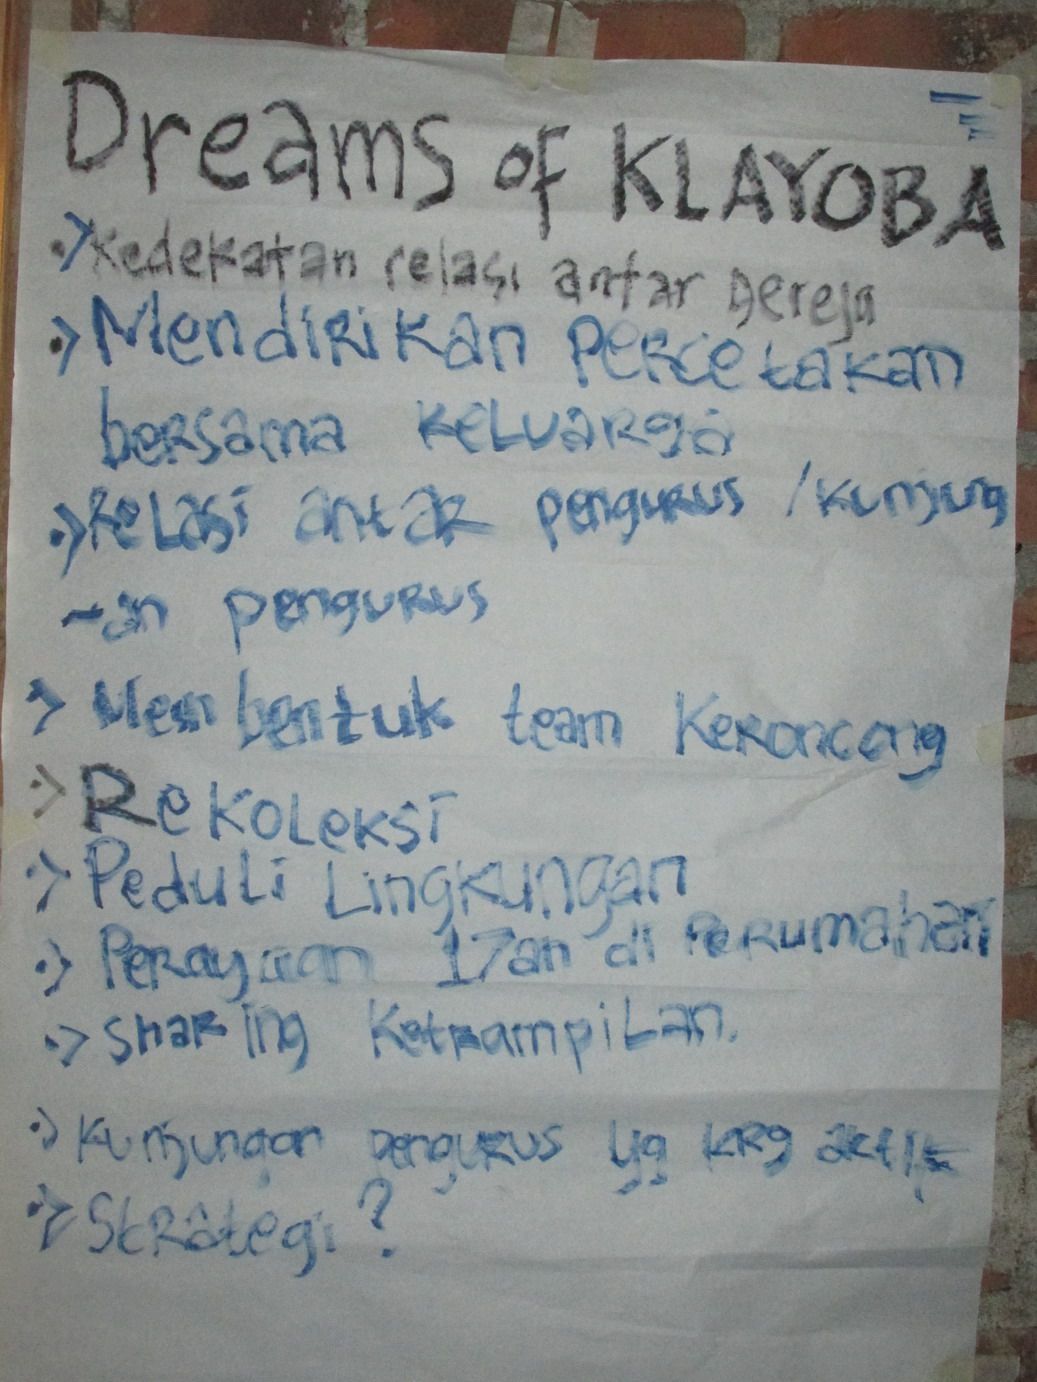 Dreams of KLAYOBA
Kedekatan relasi antar gereja
Mendirikan percetakan
bersama keluarga
Relasi antar pengurus / kunjung
-an pengurus
Membentuk team Keroncong
Rekoleksi
Peduli Lingkungan
Perayaan 17an di Perumahan
sharing Ketrampilan.
Kunjungan pengurus yg krg aktif
Strategi?